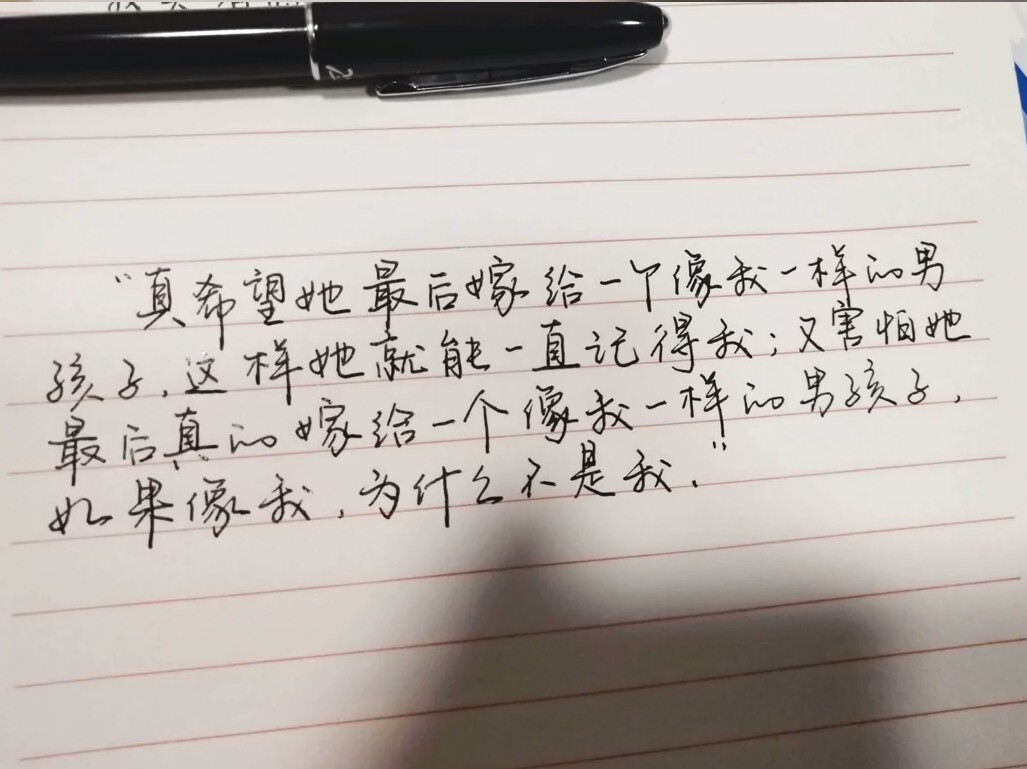 “真希望她最后嫁给一个像我一样的男
孩子,这样她就能一直记得我;又害怕她
最后真的嫁给一个像我一样的男孩子,
如果像我,为什么不是我.”